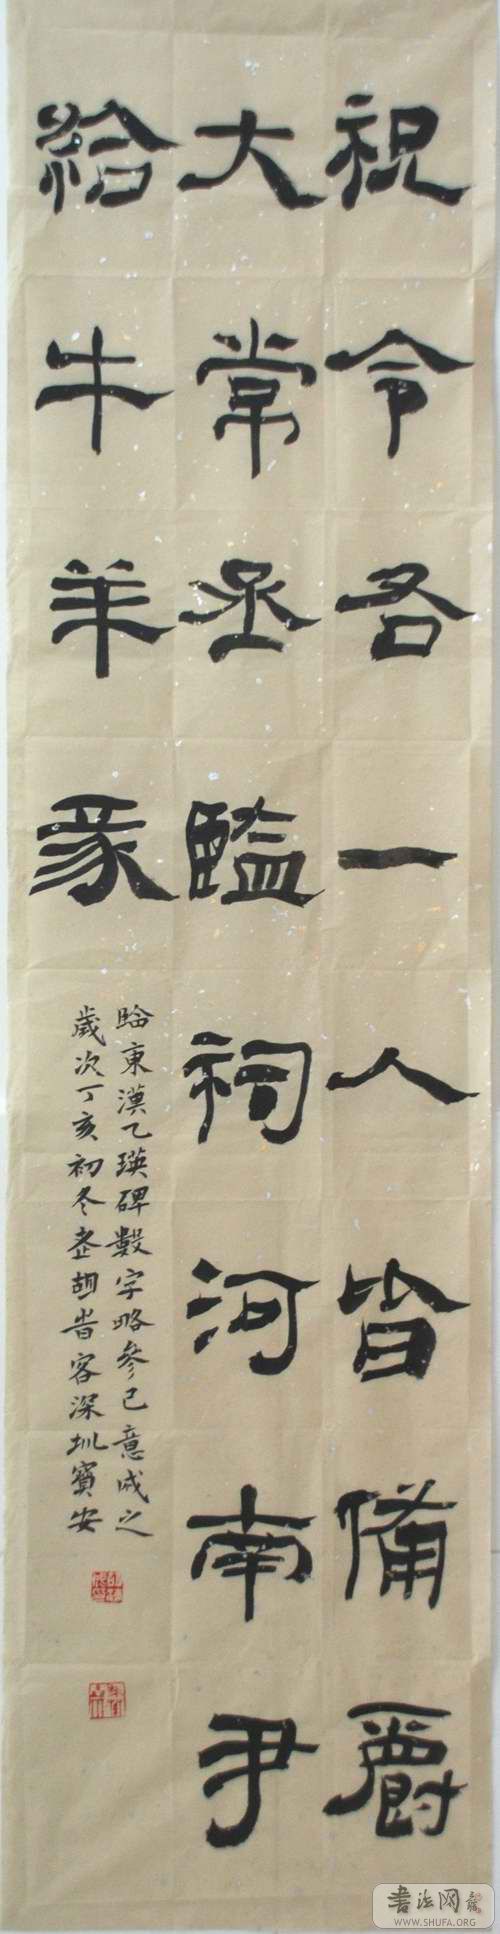 祝令各一人皆備爵
大常丞監祠河南尹
給牛羊豕
臨東漢乙瑛碑數字略參己意成之
歲次丁亥初冬老胡旹客深圳寶安
书法网
WWW.SHUFA.ORG